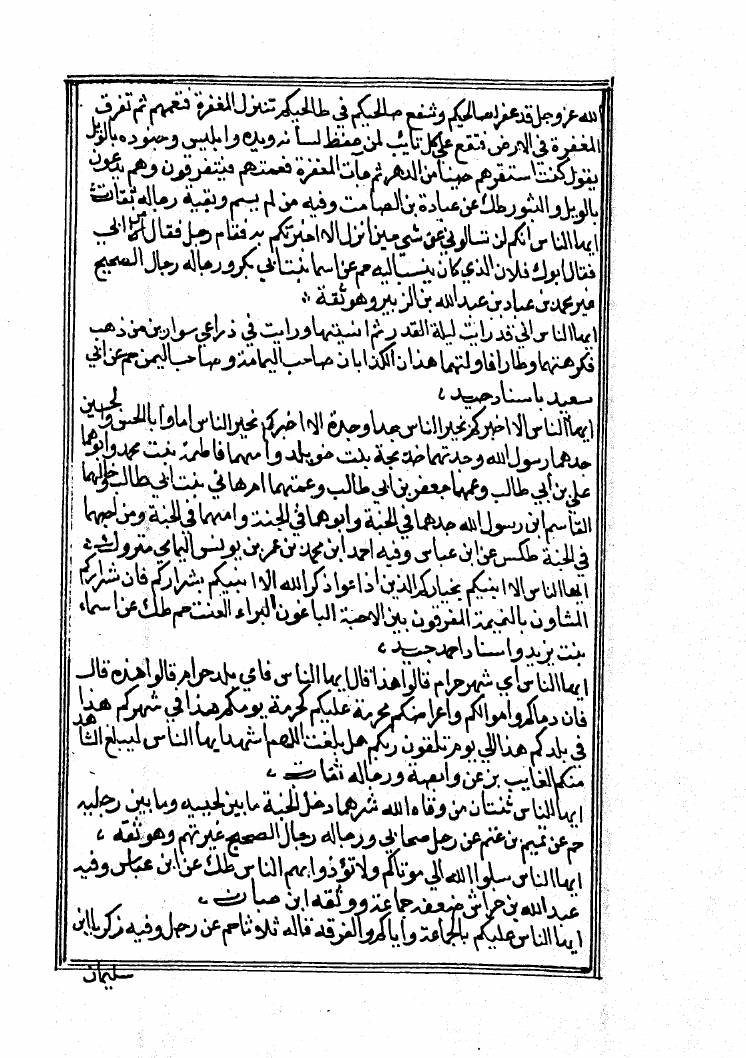 الله عز وجل قد غفر لصالحيكم وشفع صالحيكم في طالحيكم تنزل المغفرة فتعمهم ثم تفرق
المغفرة في الارض فتقع على كل تايب لمن حفظ لسانه ويده وابليس وجنوده بالويل
يقول كنت استفزهم حينا من الدهر ثم جات المغفرة فعمتهم فيتفرقون وهم يدعون
بالويل والثبور طك عن عبادة بن الصامت وفيه من لم يسم وبقية رجاله ثقات
ايها الناس انكم لن تسالوني عن شي حين انزل الا اخبرتكم به فقام رجل فقال من ابي
فقال ابوك فلان الذي كان ينسب اليه حم عن اسما بنت ابي بكر ورجاله رجال الصحيح
غير محمد بن عباد بن عبد الله بن الزبير وهو ثقة
ايها الناس اني قد رات ليلة القدر ثم انسيتها ورايت في ذراعي سوارين من ذهب
فكرهتهما وطارا فاولتهما هذان الكذابان صاحب اليمامة وصاحب اليمن حم عن ابي
سعيد باسناد جيد
ايها الناس الا اخبركم بخير الناس جدا وجدة الا اخبركم بخير الناس اما وابا الحسن والحسين
جدهما رسول الله وجدتهما خديجة بنت خويلد وامهما فاطمة بنت محمد وابوهما
علي بن ابي طالب وعمهما جعفر بن ابي طالب وعمتهما ام هاني بنت ابي طالب وخالهما
القاسم ابن رسول الله جدهما في الجنة وابوهما في الجنة وامهما في الجنة ومن احبهما
في الجنة طكس عن ابن عباس وفيه احمد ابن محمد بن عمر بن يونس اليمامي متروك
ايها الناس الا انبيكم بخياركم الذين اذا عوا ذكر الله الا انبيكم بشراركم فان شراركم
المشاون بالنميمة المفرقون بين الاحبة الباغون البراء العنت حم طك عن اسماء
بنت يزيد واسناد احمد جيد
ايها الناس أي شهر حرام قالوا هذا قال ايها الناس فاي بلد حرام قالوا هذه قال
فان دماكم واموالكم واعراضكم محرمة عليكم كحرمة يومكم هذا في شهركم هذا
في بلدكم هذا الي يوم تلقون ربكم هل بلغت اللهم اشهد ايها الناس ليبلغ الشاهد
منكم الغايب بز عن وابصة ورجاله ثقات
ايها الناس ثنتان من وقاه الله شرهما دخل الجنة ما بين لحييه وما بين رجليه
حم عن تميم بن غنم عن رجل صحابي ورجاله رجال الصحيح غير تميم وهو ثقه
ايها الناس سلوا الله الي موتاكم ولا تؤذوا بهم الناس طك عن ابن عباس وفيه
عبد الله بن خراش ضعفه جماعة ووثقه ابن حبان
ايها الناس عليكم بالجماعة واياكم والفرقه قاله ثلاثا حم عن رجل وفيه زكريا ابن
سليمان